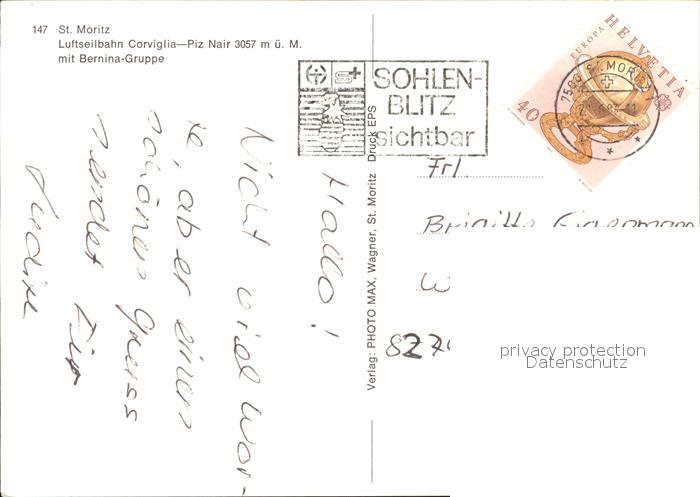 147 St. Moritz
Luftseilbahn Corviglia—Piz Nair 3057 m ü. M.
mit Bernina-Gruppe
SOHLEN-
BLITZ
sichtbar
EUROPA
HELVETIA
40
ST. MORITZ
Verlag: PHOTO MAX, Wagner, St. Moritz Druck EPS
Hallo!
Nicht viel Wor-
te, aber einen
schönen Gruess
sendet Dir
Frl
Brigitte
W
827
privacy protection
Datenschutz